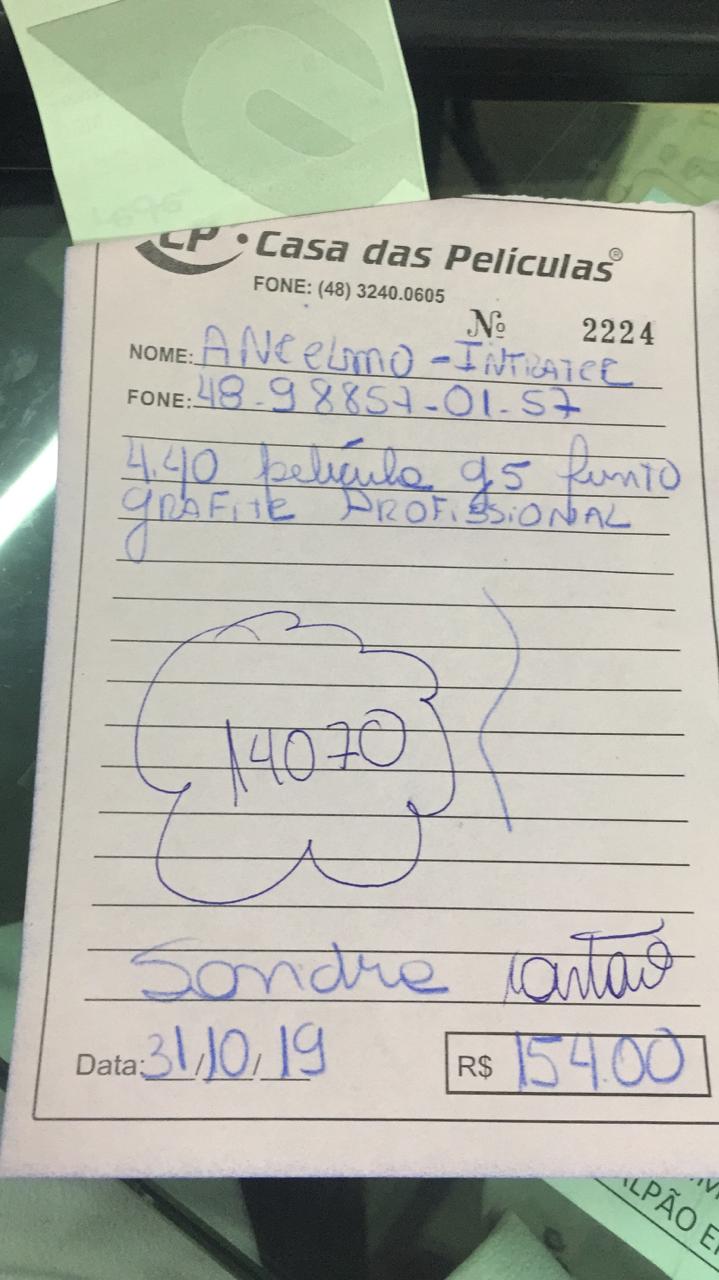 CP • Casa das Películas®
FONE: (48) 3240.0605
Nº 2224
NOME: ANCELMO - INTRATEC
FONE: 48-98857-01-57
4.40 película g5 funto
GRAFITE PROFISSIONAL
14070
Sondre cartão
Data: 31/10/19 R$ 154.00
ALPÃO E